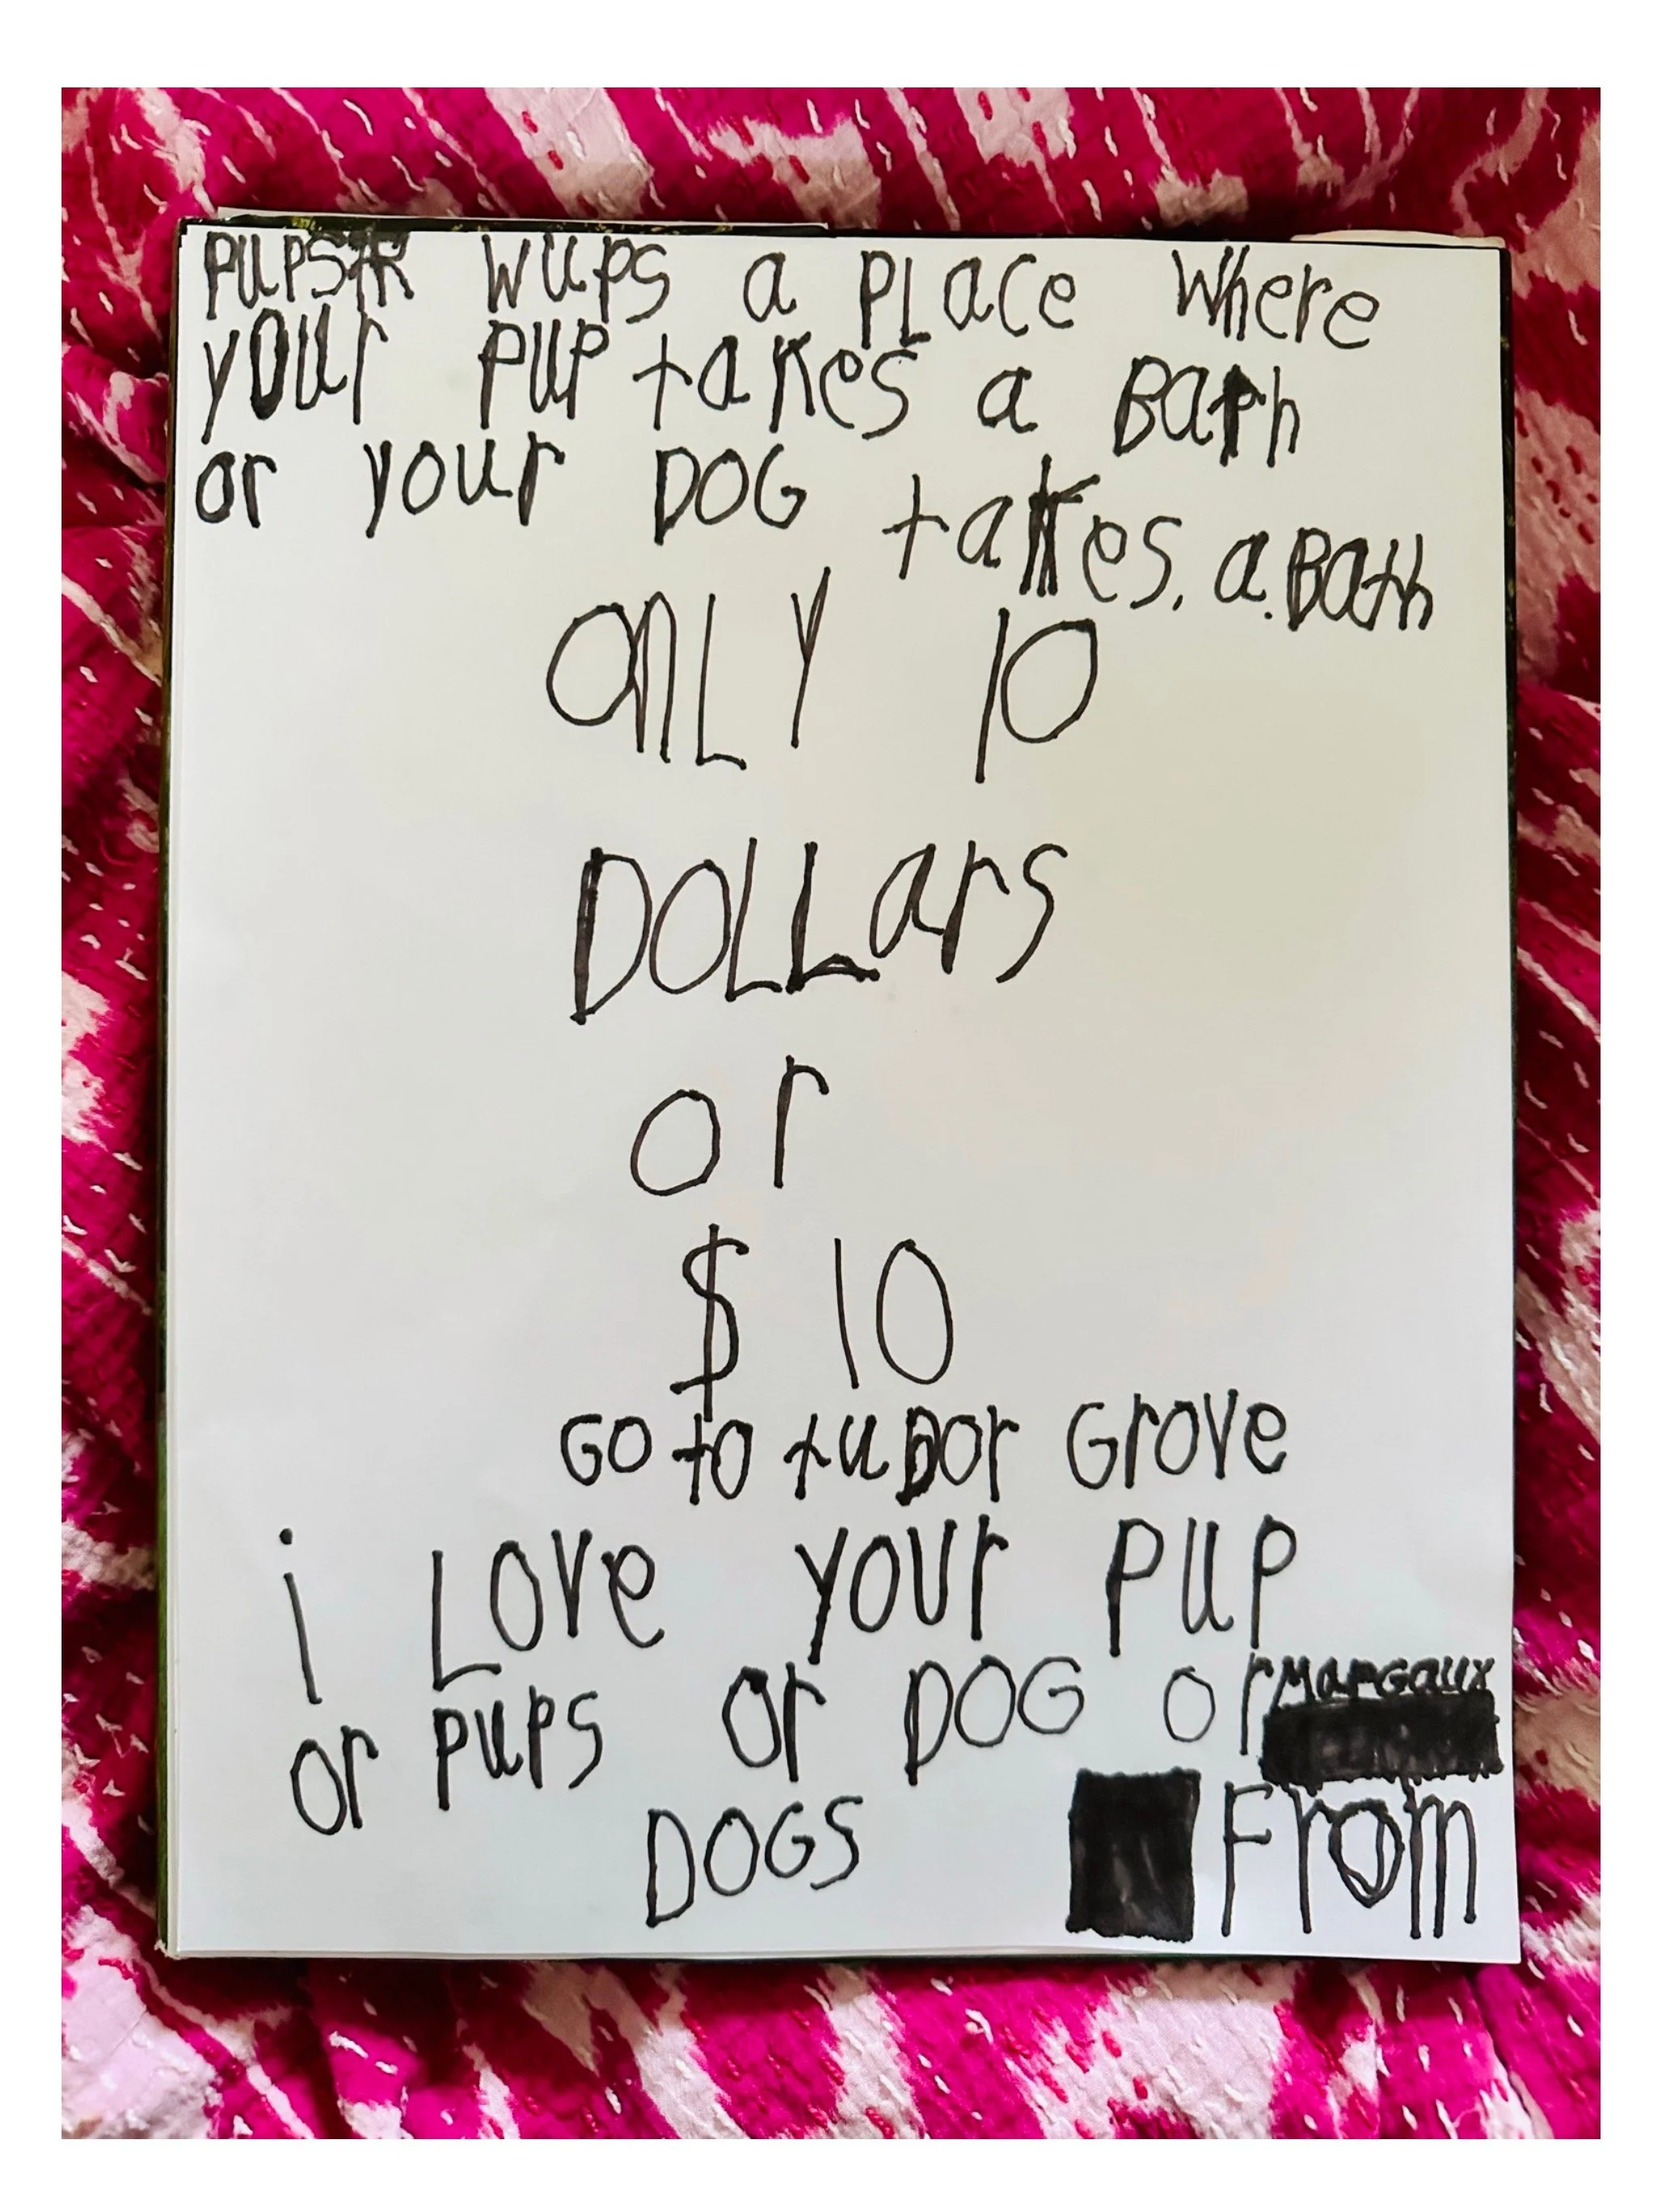 PUPSTR WUPS a PLace Where
your PUP takes a Bath
or your DOG takes. a. Bath
onLY 10
DOLLars
or
$ 10
GO to tuDor Grove
i Love your PUP
or PuPs or DOG or Margaux
DOGS From